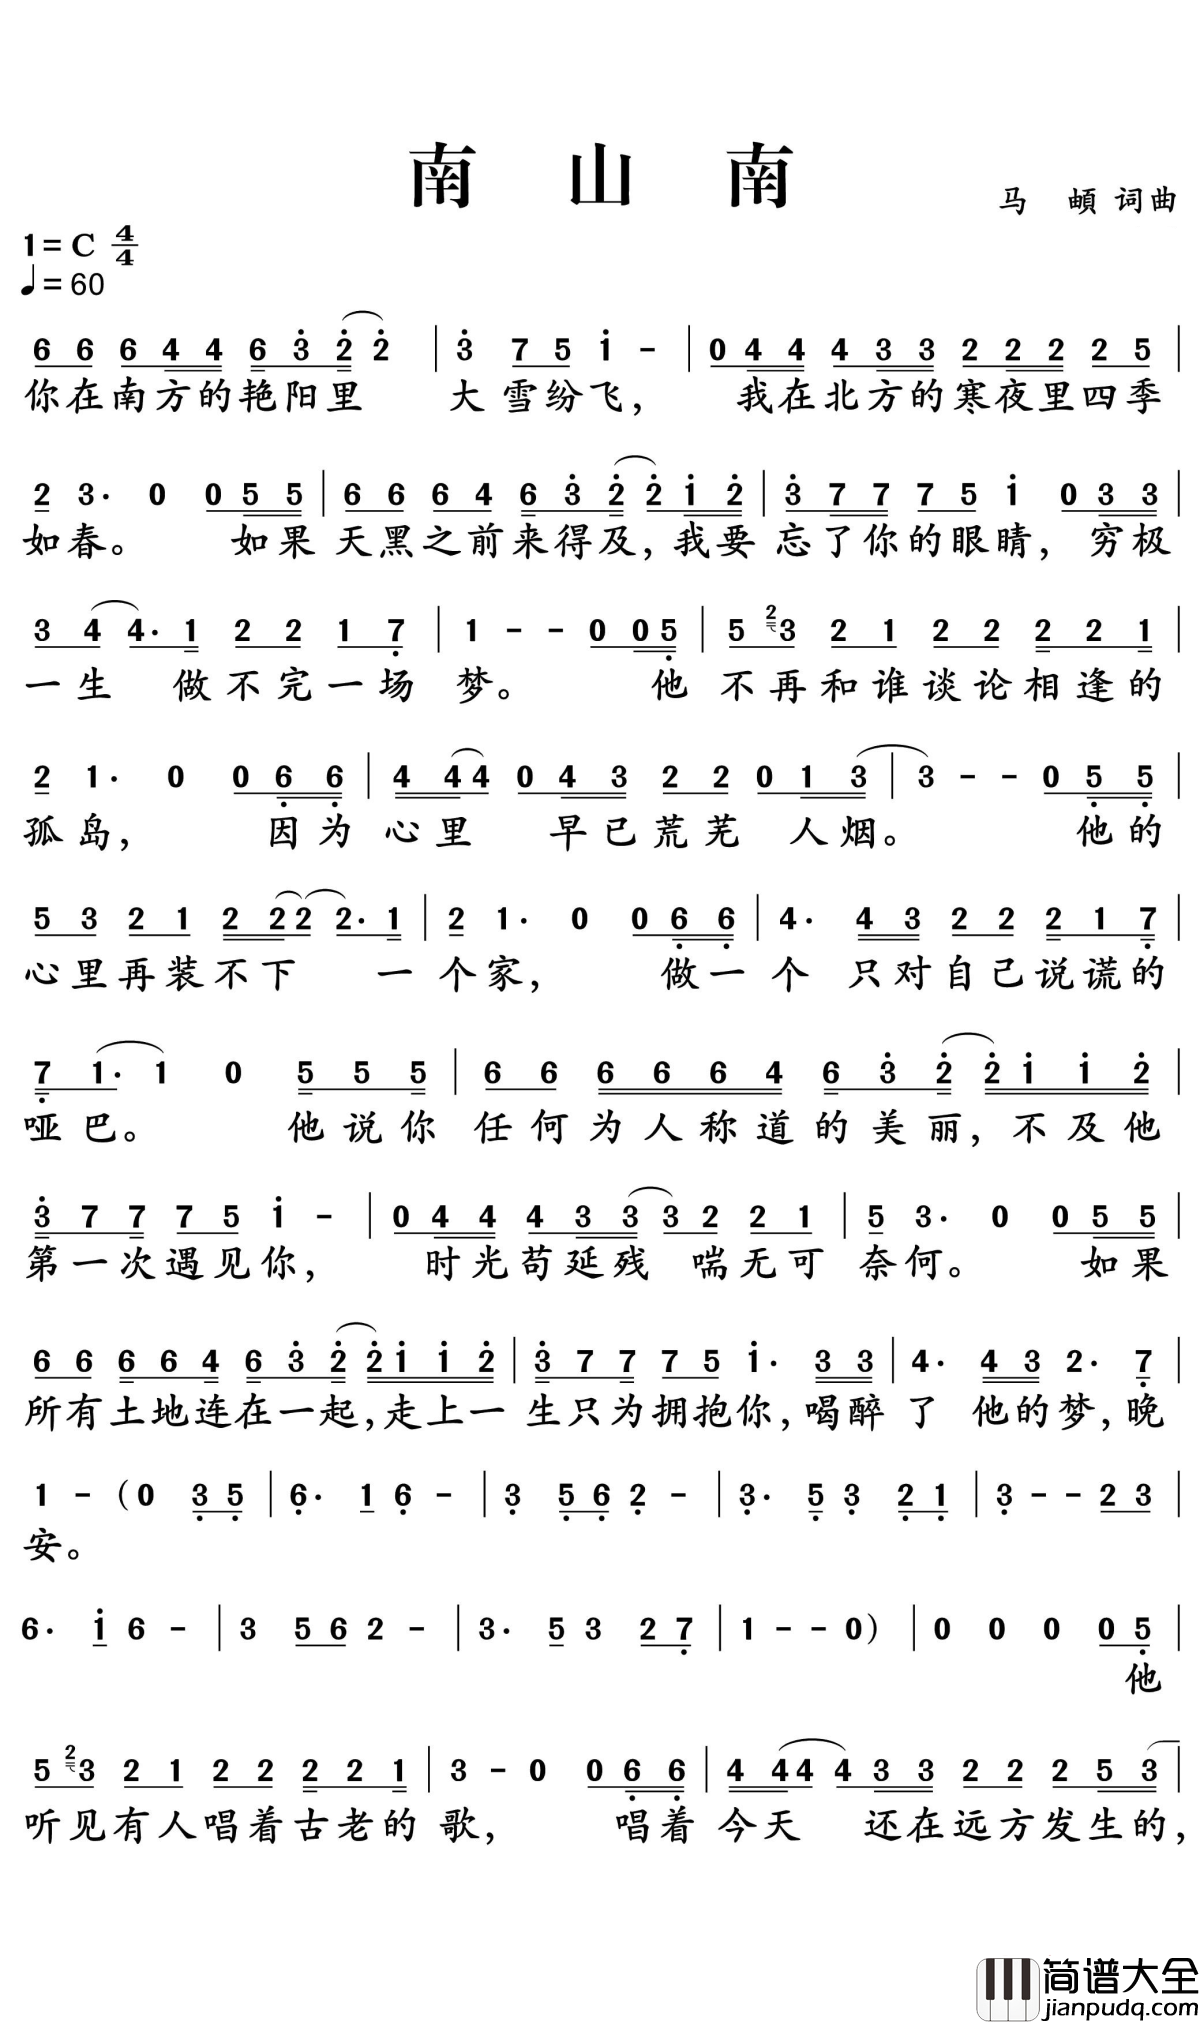 南 山 南
马 頔 词曲
1=C 4/4
♩=60
6 6 6 4 4 6 3̇ 2̇ 2̇ | 3̇ 7 5 1̇ - | 0 4 4 4 3 3 2 2 2 2 5 |
你在南方的艳阳里 大雪纷飞, 我在北方的寒夜里四季
2 3· 0 0 5 5 | 6 6 6 4 6 3̇ 2̇ 2̇ 1̇ 2̇ | 3̇ 7 7 7 5 1̇ 0 3 3 |
如春。 如果 天黑之前来得及, 我要 忘了你的眼睛, 穷极
3 4 4· 1 2 2 1 7̣ | 1 - - 0 0 5̣ | 5 2 3 2 1 2 2 2 2 1 |
一生 做不完一场 梦。 他 不再和谁谈论相逢的
2 1· 0 0 6̣ 6̣ | 4 4 4 0 4 3 2 2 0 1 3 | 3 - - 0 5̣ 5̣ |
孤岛, 因为 心里 早已荒芜 人烟。 他的
5 3 2 1 2 2 2 2· 1 | 2 1· 0 0 6̣ 6̣ | 4· 4 3 2 2 2 1 7̣ |
心里再装不下 一个家, 做一个 只对自己说谎的
7̣ 1· 1 0 5 5 5 | 6 6 6 6 6 4 6 3̇ 2̇ 2̇ 1̇ 1̇ 2̇ |
哑巴。 他说你 任何为人称道的美丽, 不及他
3̇ 7 7 7 5 1̇ - | 0 4 4 4 3 3 3 2 2 1 | 5 3· 0 0 5 5 |
第一次遇见你, 时光苟延残 喘无可 奈何。 如果
6 6 6 6 4 6 3̇ 2̇ 2̇ 1̇ 1̇ 2̇ | 3̇ 7 7 7 5 1̇· 3 3 | 4· 4 3 2· 7̣ |
所有土地连在一起, 走上一 生只为拥抱你, 喝醉了 他的梦, 晚
1 - (0 3̣ 5̣ | 6̣· 1 6̣ - | 3̣ 5̣ 6̣ 2̣ - | 3̣· 5̣ 3̣ 2̣ 1̣ | 3̣ - - 2 3 |
安。
6· 1̇ 6 - | 3 5 6 2 - | 3· 5 3 2 7̣ | 1 - - 0) | 0 0 0 0 5̣ |
他
5 2 3 2 1 2 2 2 2 1 | 3 - 0 0 6̣ 6̣ | 4 4 4 4 3 3 2 2 2 5 3 |
听见有人唱着古老的歌, 唱着 今天 还在远方发生的,
简谱大全
jianpudq.com